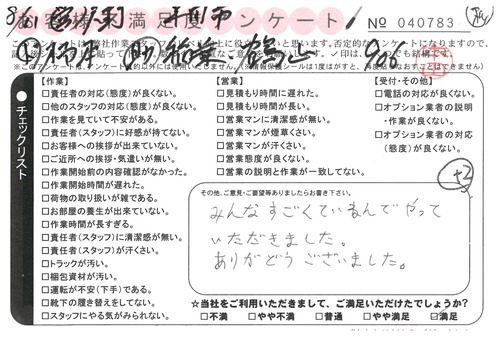 お客様満足度アンケート
No 040783
※このアンケートは、
チェックリスト
【作業】
□責任者の対応(態度)が良くない。
□他のスタッフの対応(態度)が良くない。
□作業を見ていて不安がある。
□責任者(スタッフ)に好感が持てない。
□お客様への挨拶が出来ていない。
□ご近所への挨拶・気遣いが無い。
□作業開始前の内容確認がなかった。
□作業開始時間が遅れた。
□荷物の取り扱いが雑である。
□お部屋の養生が出来ていない。
□作業時間が長すぎる。
□責任者(スタッフ)に清潔感が無い。
□責任者(スタッフ)が汗くさい。
□トラックが汚い。
□梱包資材が汚い。
□運転が不安(下手)である。
□靴下の履き替えをしてない。
□スタッフにやる気がみられない。
【営業】
□見積もり時間に遅れた。
□見積もり時間が長い。
□営業マンに清潔感が無い。
□営業マンが煙草くさい。
□営業マンが汗くさい。
□営業態度が良くない。
□営業の説明と作業が一致してない。
【受付・その他】
□電話の対応が良くない。
□オプション業者の説明
・作業が良くない。
□オプション業者の対応
(態度)が良くない。
+2
その他、ご意見・ご要望等ありましたらお書き下さい。
みんなすごくていねんでやって
いただきました。
ありがとうございました。
☆当社をご利用いただきまして、ご満足いただけたでしょうか?
□不満 □やや不満 □普通 □やや満足 ☑満足